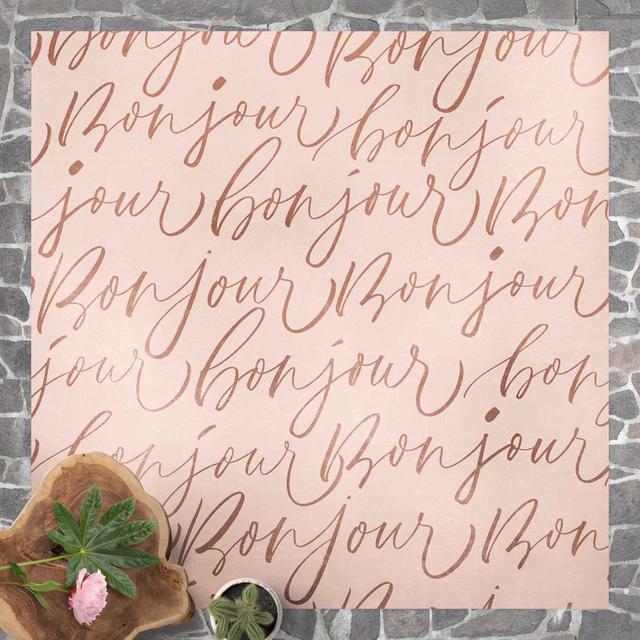 Bonjour Bonjour
Bonjour bonjour
jour bonjour Bon
Bonjour Bonjour
jour bonjour bon
bonjour Bonjour
Bonjour Bon